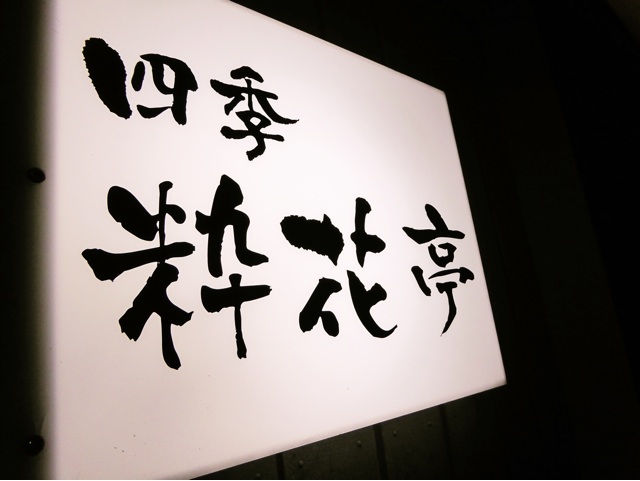 四季
粋花亭